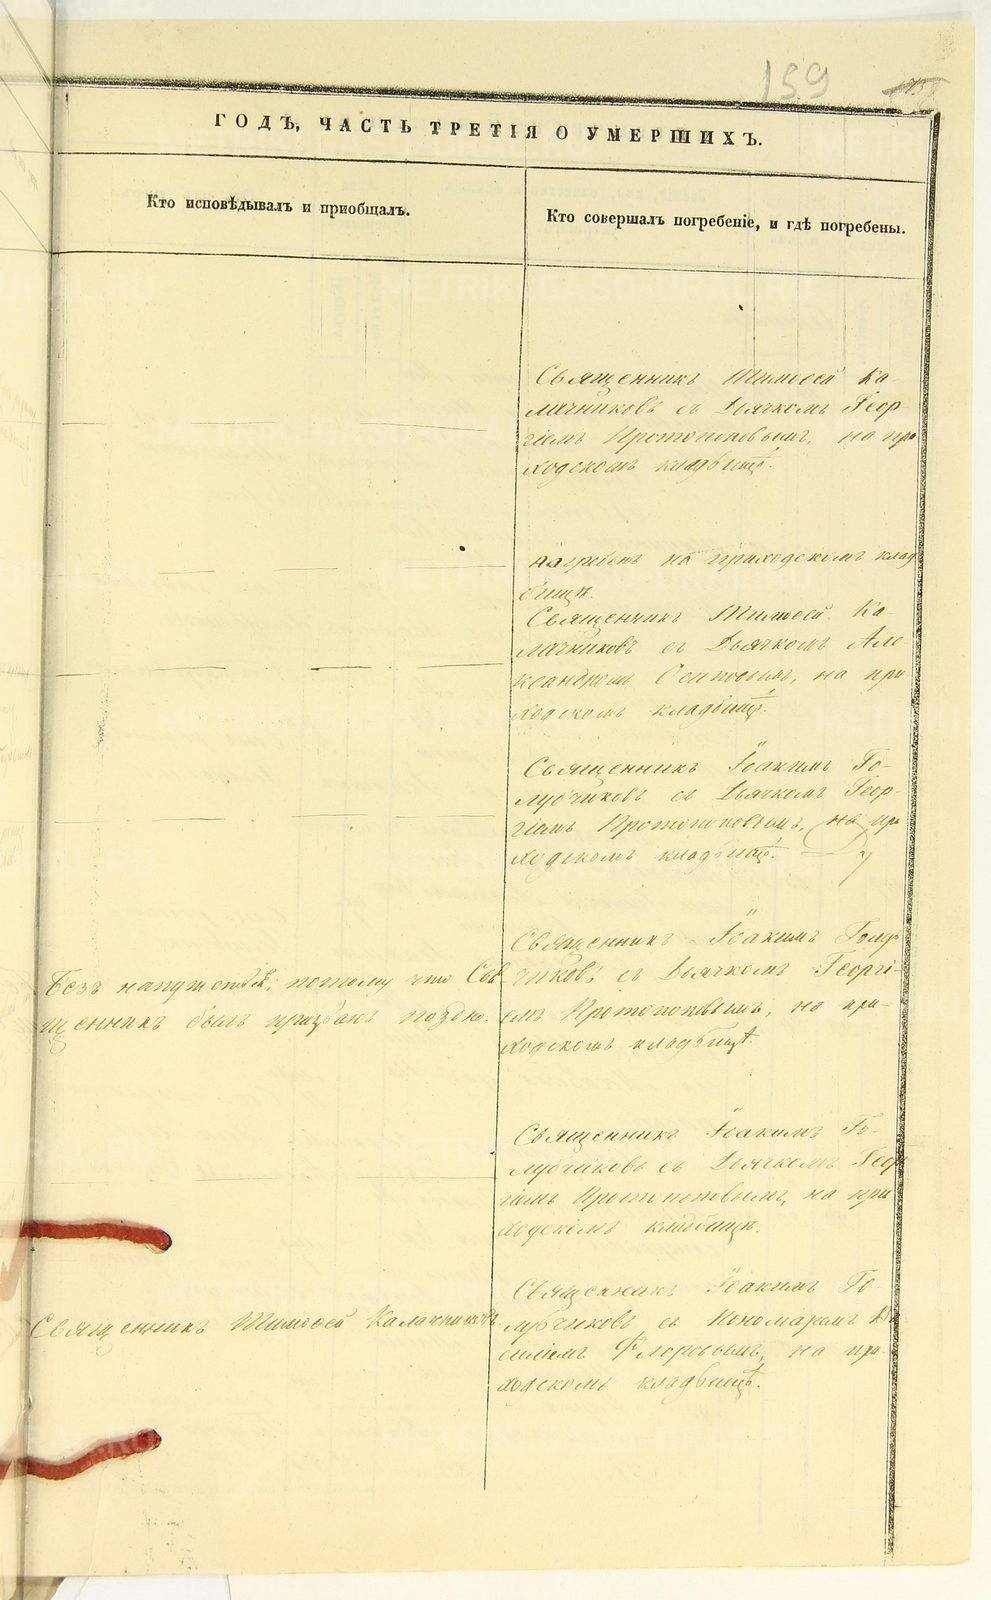 159
ГОДЪ, ЧАСТЬ ТРЕТІЯ О УМЕРШИХЪ.
Кто исповѣдывалъ и приобщалъ.
Кто совершалъ погребеніе, и гдѣ погребены.
Священникъ Тимоѳей Ка-
лачниковъ съ Дьячкомъ Геор
гіемъ Протопоповымъ, на при
ходскомъ кладбищѣ.
погребенъ на приходскомъ клад
бищѣ.
Священникъ Тимоѳей Ка-
лачниковъ съ Дьячкомъ Але
ксандромъ Осиповымъ, на при
ходскомъ кладбищѣ.
Священникъ Іоакимъ Го-
лубчиковъ съ Дьячкомъ Геор-
гіемъ Протопоповымъ, на при
ходскомъ кладбищѣ.
Безъ напутствія, потому что Свя-
щенникъ былъ призванъ поздно.
Священникъ Іоакимъ Голуб
чиковъ съ Дьячкомъ Георгі-
емъ Протопоповымъ, на при-
ходскомъ кладбищѣ.
Священникъ Іоакимъ Го-
лубчиковъ съ Дьячкомъ Геор
гіемъ Протопоповымъ, на при
ходскомъ кладбищѣ.
Священникъ Тимоѳей Калачниковъ
Священникъ Іоакимъ Го-
лубчиковъ съ Пономаремъ Ва
силіемъ Флоровымъ, на при-
ходскомъ кладбищѣ.
METRIKI.GASO-URAL.RU